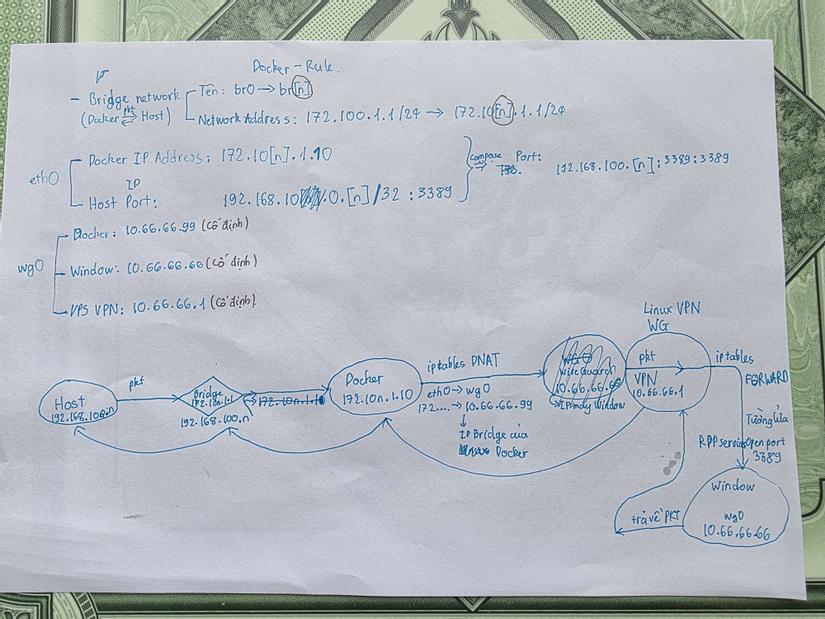 Docker - Rule.
- Bridge network
(Docker pkt Host)
Tên: br0 → br[n]
Network Address: 172.100.1.1/24 → 172.10[n].1.1/24
eth0
Docker IP Address: 172.10[n].1.10
Host IP Port: 192.168.10 .0.[n]/32 :3389
compose → Port: 192.168.100.[n]:3389:3389
wg0
Docker: 10.66.66.99 (Cố định)
Window: 10.66.66.66 (Cố định)
VPS VPN: 10.66.66.1 (Cố định)
Host
192.168.100.n
pkt
Bridge
172.10n.1.1
192.168.100.n
172.10n.1.10
Docker
172.10n.1.10
iptables DNAT
eth0 → wg0
172.... → 10.66.66.99
↓
IP Bridge của
Docker
WG0
WireGuard
10.66.66.66
Window
Linux VPN
WG
pkt
VPN
10.66.66.1
iptables
FORWARD
Tường lửa
RDP service Open port
3389
Window
wg0
10.66.66.66
trả về PKT